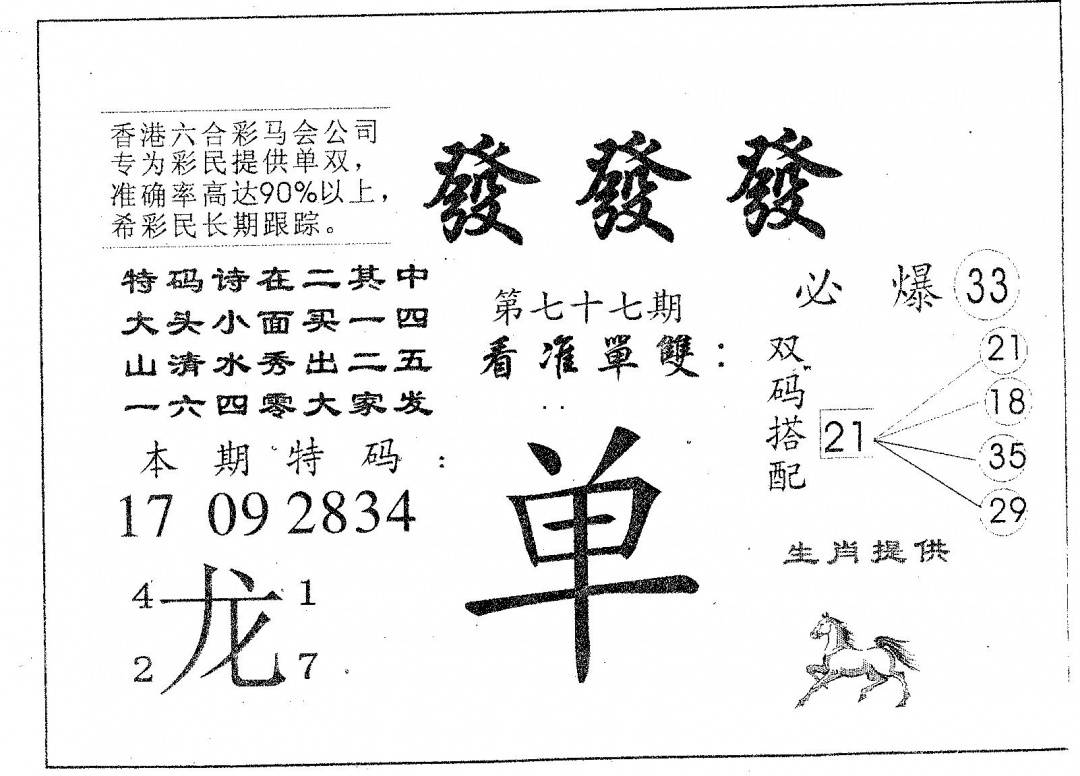 香港六合彩马会公司
专为彩民提供单双，
准确率高达90%以上，
希彩民长期跟踪。
發發發
特码诗在二其中
大头小面买一四
山清水秀出二五
一六四零大家发
第七十七期
看准單雙：
必爆33
双码搭配
21
21
18
35
29
本期特码：
17 09 2834
单
龙
4
1
2
7
生肖提供